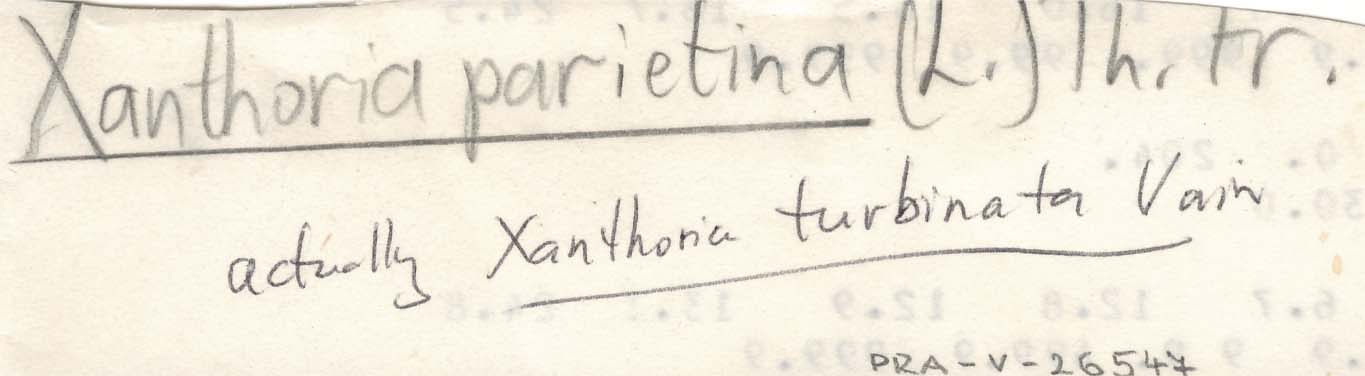 Xanthoria parietina (L.) Th. Fr.
actually Xanthoria turbinata Vain
PRA-V-26547